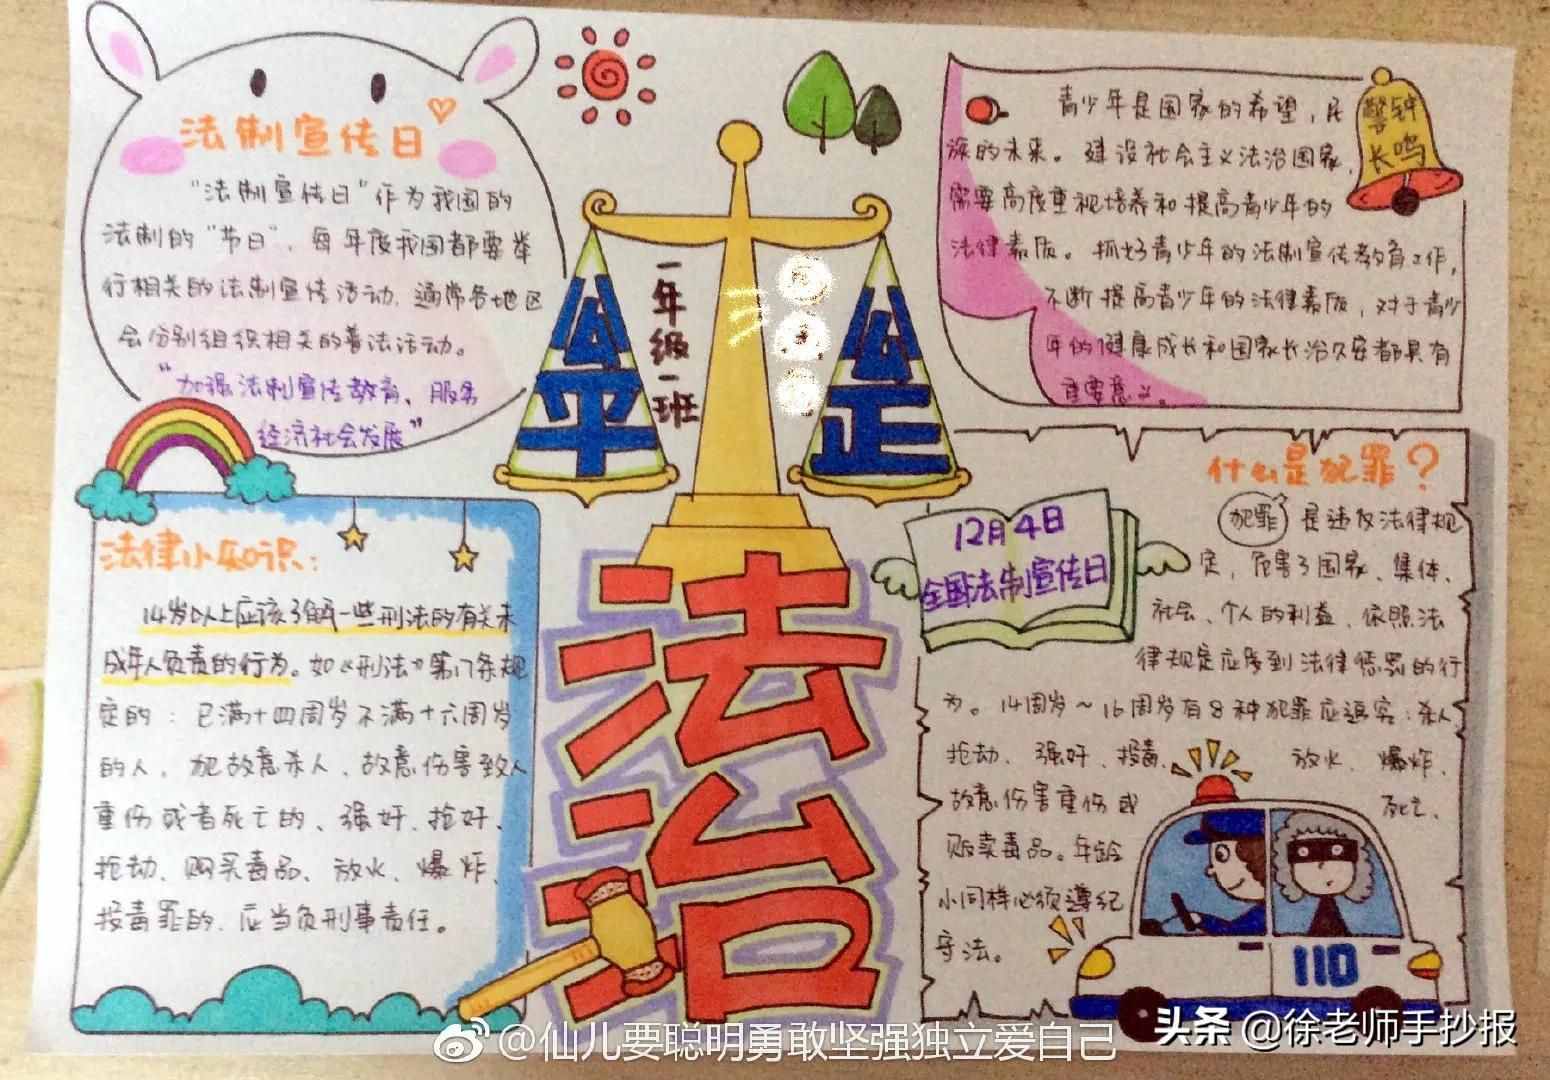 法制宣传日
“法制宣传日”作为我国的
法制的“节日”，每年度我国都要举
行相关的法制宣传活动，通常各地区
会分别组织相关的普法活动。
“加强法制宣传教育、服务
经济社会发展”
公平
一年级一班
公正
青少年是国家的希望，民
族的未来。建设社会主义法治国家，
需要高度重视培养和提高青少年的
法律素质。抓好青少年的法制宣传教育工作，
不断提高青少年的法律素质，对于青少
年的健康成长和国家长治久安都具有
重要意义。
警钟
长鸣
法律小知识：
14岁以上应该了解一些刑法的有关未
成年人负责的行为。如《刑法》第17条规
定的：已满十四周岁不满十六周岁
的人，犯故意杀人、故意伤害致人
重伤或者死亡的、强奸、抢奸、
抢劫、购买毒品、放火、爆炸、
投毒罪的，应当负刑事责任。
法治
12月4日
全国法制宣传日
什么是犯罪？
犯罪 是违反法律规
定，危害了国家、集体、
社会、个人的利益，依照法
律规定应受到法律惩罚的行
为。14周岁～16周岁有8种犯罪应追究：杀人、
抢劫、强奸、投毒、放火、爆炸、
故意伤害重伤或死亡、
贩卖毒品。年龄
小同样必须遵纪
守法。
110
@仙儿要聪明勇敢坚强独立爱自己
头条 @徐老师手抄报